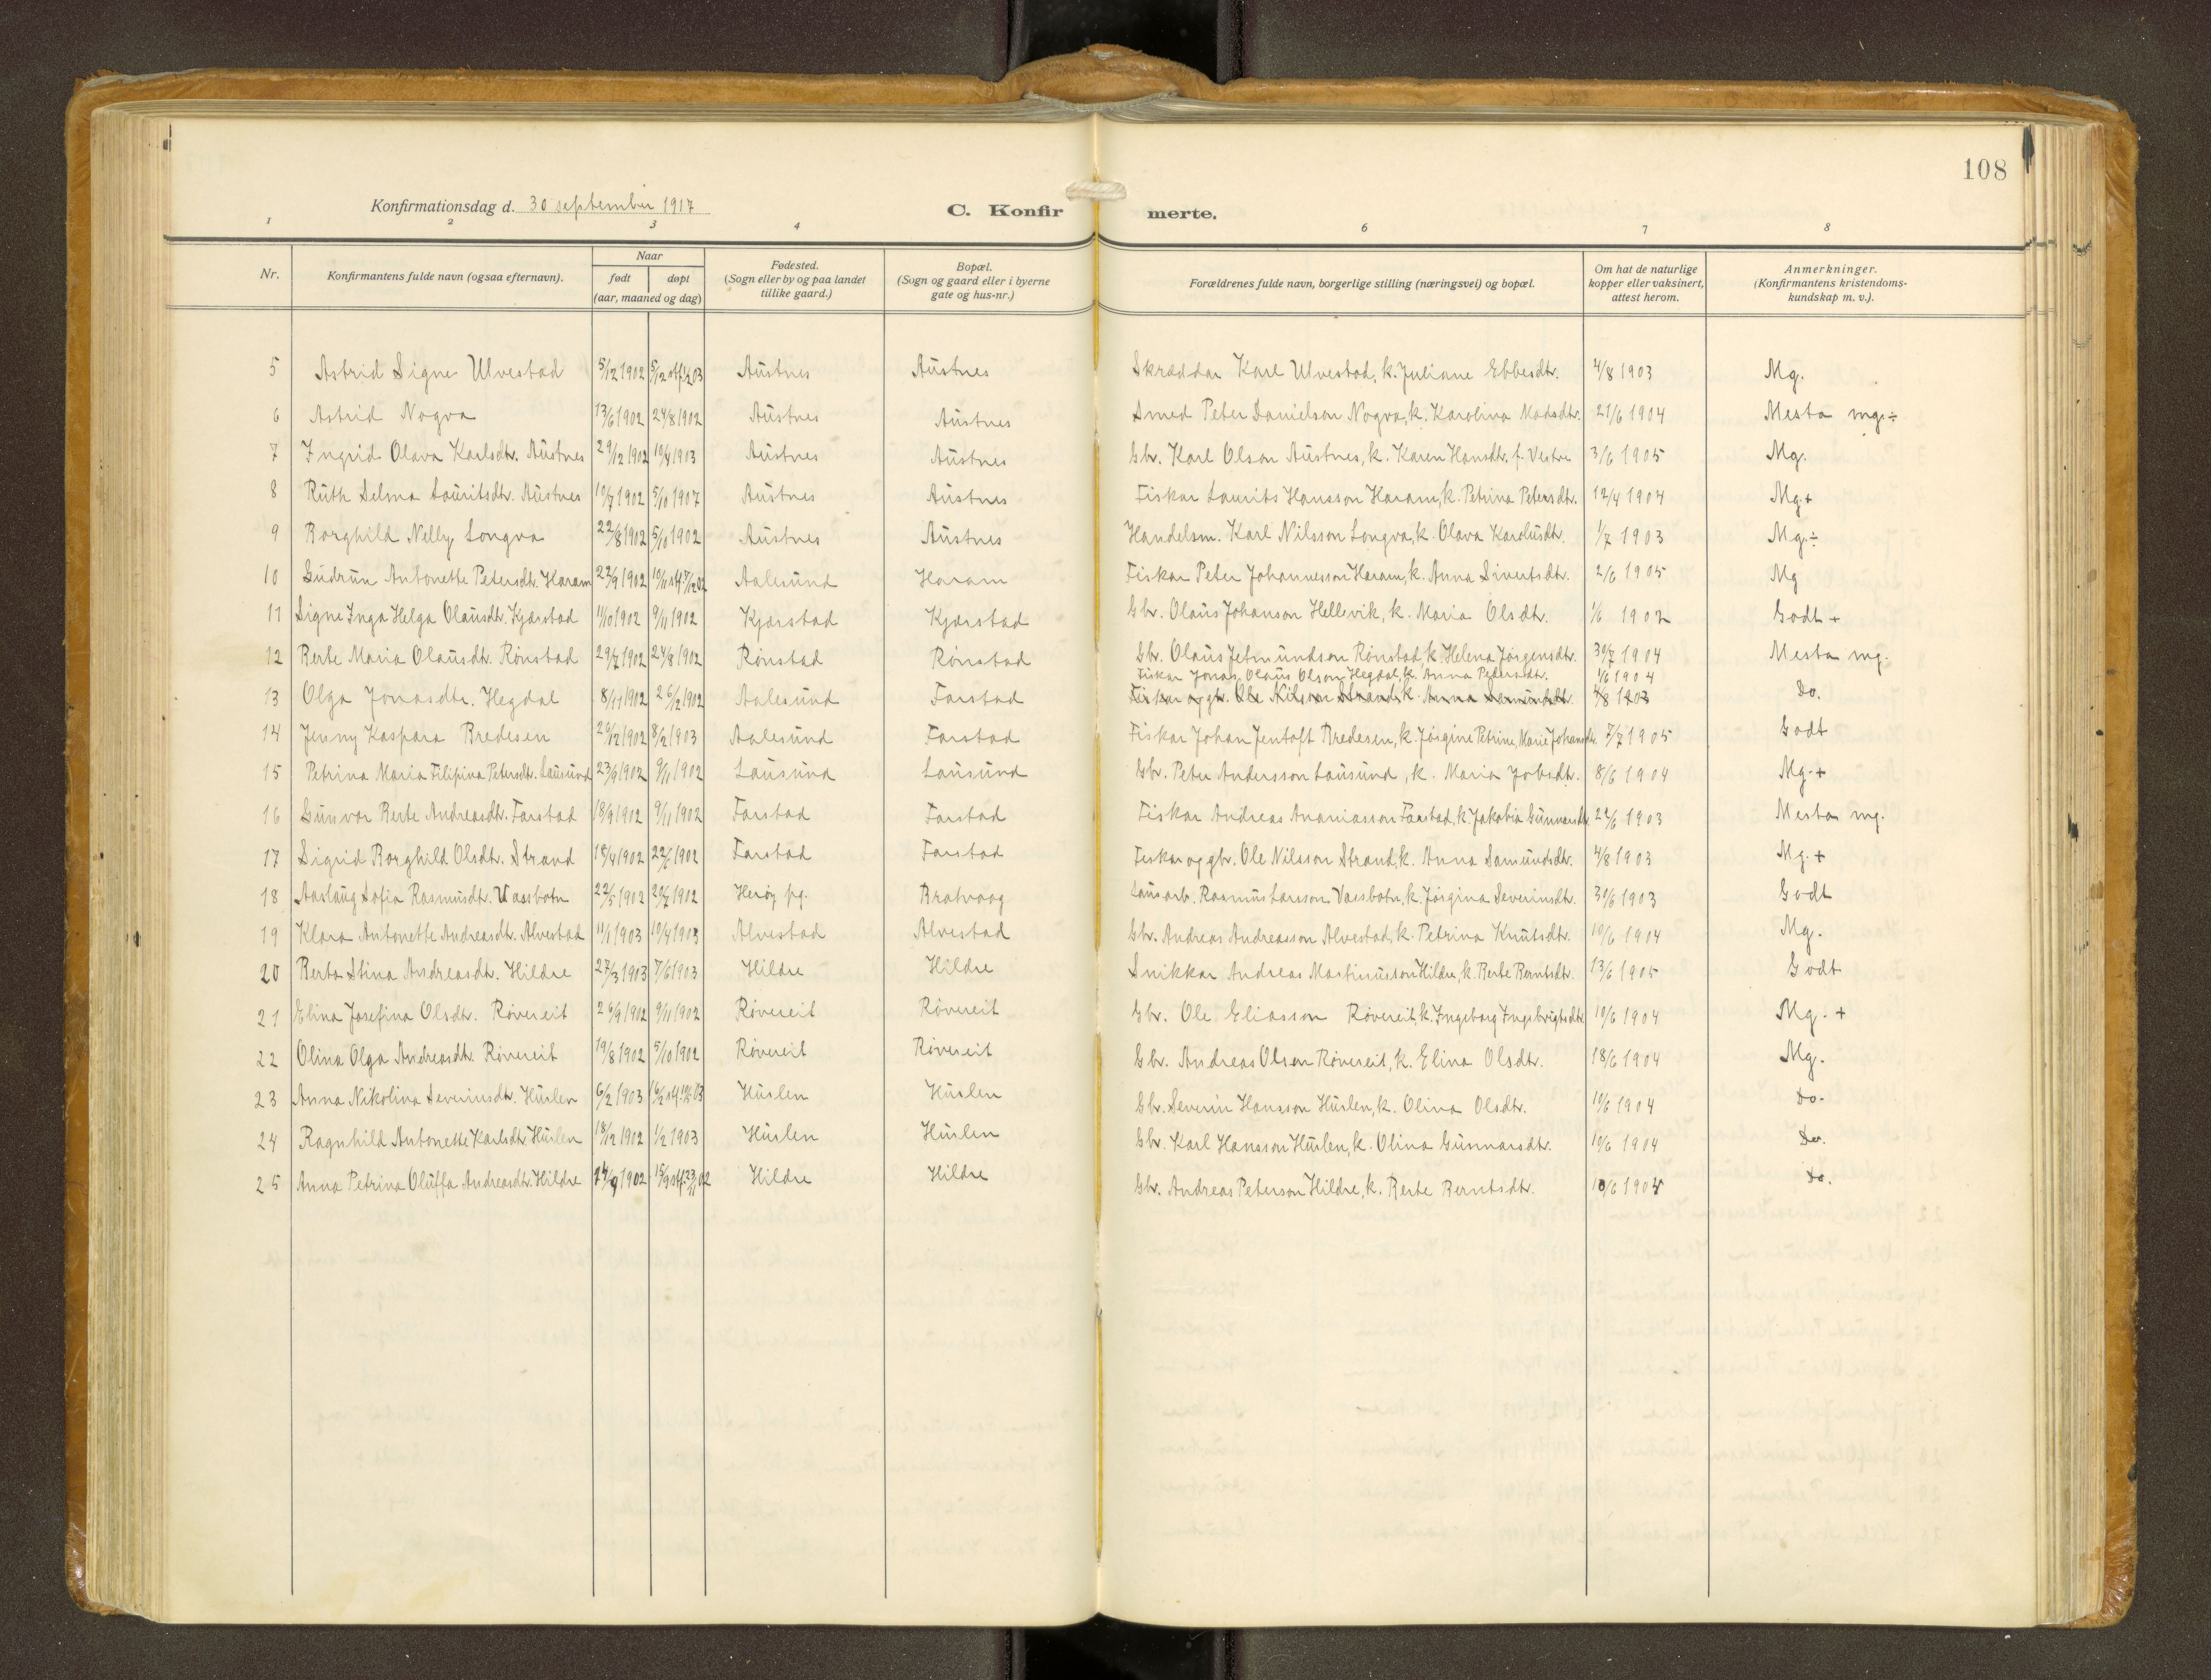 108
Konfirmationsdag d. 30 september 1917
C. Konfir merte.
1 2 3 4 6 7 8
Nr. Konfirmantens fulde navn (ogsaa efternavn). Naar født døpt (aar, maaned og dag) Fødested. (Sogn eller by og paa landet tillike gaard.) Bopæl. (Sogn og gaard eller i byerne gate og hus-nr.) Forældrenes fulde navn, borgerlige stilling (næringsvei) og bopæl. Om hat de naturlige kopper eller vaksinert, attest herom. Anmerkninger. (Konfirmantens kristendomskundskap m. v.).
5 Astrid Signe Ulvestad 5/12 1902 Austnes Austnes Skræddar Karl Ulvestad, k. Juliane Ebbesdtr. 4/8 1903 Mg.
6 Astrid Nogva 13/6 1902 24/8 1902 Austnes Austnes Smed Peter Danielson Nogva, k. Karolina Madsdtr. 21/6 1904 Mesta mg÷
7 Ingrid Olava Karlsdtr. Austnes 29/12 1902 10/4 1903 Austnes Austnes Gbr. Karl Olson Austnes, k. Karen Hansdtr. f. Vestre 3/6 1905 Mg.
8 Ruth Selma Lauritsdtr. Austnes 10/7 1902 5/10 1907 Austnes Austnes Fiskar Laurits Hansson Haram, k. Petrina Petersdtr. 12/4 1904 Mg+
9 Borghild Nelly Longva 22/8 1902 5/10 1902 Austnes Austnes Handelsm. Karl Nilsson Longva, k. Olava Karolusdtr. 1/7 1903 Mg÷
10 Gudrun Antonette Petersdtr. Haram 22/9 1902 Aalesund Haram Fiskar Peter Johannesson Haram, k. Anna Sivertsdtr. 2/6 1905 Mg
11 Signe Inga Helga Olausdtr. Kjærstad 11/10 1902 9/11 1902 Kjærstad Kjærstad Gbr. Olaus Johanson Hellevik, k. Maria Olsdtr. 1/6 1902 Godt +
12 Berte Maria Olausdtr. Rønstad 29/7 1902 24/8 1902 Rønstad Rønstad Gbr. Olaus Jetmundson Rønstad, k. Helena Jørgensdtr. 30/7 1904 Mesta mg.
Fiskar Jonas Olaus Olson Hegdal, k. Anna Pedersdtr. 1/6 1904
13 Olga Jonasdtr. Hegdal 8/11 1902 26/12 1902 Aalesund Farstad Fiskar og gbr. Ole Nilsson Strand, k. Anna Samundsdtr. 4/8 1903 Do.
14 Jenny Kaspara Bredesen 26/12 1902 8/2 1903 Aalesund Farstad Fiskar Johan Jentoft Bredesen, k. Jørgine Petrine Marie Johansdtr. 7/7 1905 Godt
15 Petrina Maria Filipina Petersdtr. Lausund 23/9 1902 9/11 1902 Lausund Lausund Gbr. Peter Andersson Lausund, k. Maria Jobsdtr. 8/6 1904 Mg.+
16 Gunvor Berte Andreasdtr. Farstad 18/9 1902 9/11 1902 Farstad Farstad Fiskar Andreas Ananiasson Farstad, k. Jakobia Gunnarsdtr. 22/6 1903 Mesta mg.
17 Sigrid Borghild Olsdtr. Strand 18/4 1902 Farstad Farstad Fiskar og gbr. Ole Nilsson Strand, k. Anna Samundsdtr. 4/8 1903 Mg.+
18 Aaslaug Sofia Rasmusdtr. Vassbotn 22/5 1902 20/7 1902 Herøy pg. Bratvaag Lausarb. Rasmus Larsson Vassbotn, k. Jørgina Severinsdtr. 30/6 1903 Godt
19 Klara Antonette Andreasdtr. Alvestad 11/1 1903 10/4 1903 Alvestad Alvestad Gbr. Andreas Andreasson Alvestad, k. Petrina Knutsdtr. 10/6 1904 Mg.
20 Berta Stina Andreasdtr. Hildre 27/3 1903 7/6 1903 Hildre Hildre Snikkar Andreas Martinusson Hildre, k. Berte Berntsdtr. 13/6 1905 Godt
21 Elina Josefina Olsdtr. Røvereit 26/9 1902 9/11 1902 Røvereit Røvereit Gbr. Ole Eliasson Røvereit, k. Ingeborg Ingebrigtsdtr. 10/6 1904 Mg. +
22 Olina Olga Andreasdtr. Røvereit 19/8 1902 5/10 1902 Røvereit Røvereit Gbr. Andreas Olson Røvereit, k. Elina Olsdtr. 18/6 1904 Mg.
23 Anna Nikolina Severinsdtr. Huslen 6/2 1903 Huslen Huslen Gbr. Severin Hansson Huslen, k. Olina Olsdtr. 10/6 1904 Do.
24 Ragnhild Antonette Karlsdtr. Huslen 18/12 1902 1/2 1903 Huslen Huslen Gbr. Karl Hansson Huslen, k. Olina Gunnarsdtr. 10/6 1904 Do.
25 Anna Petrina Oluffa Andreasdtr. Hildre 14/9 1902 Hildre Hildre Gbr. Andreas Peterson Hildre, k. Berte Berntsdtr. 10/6 1904 Do.